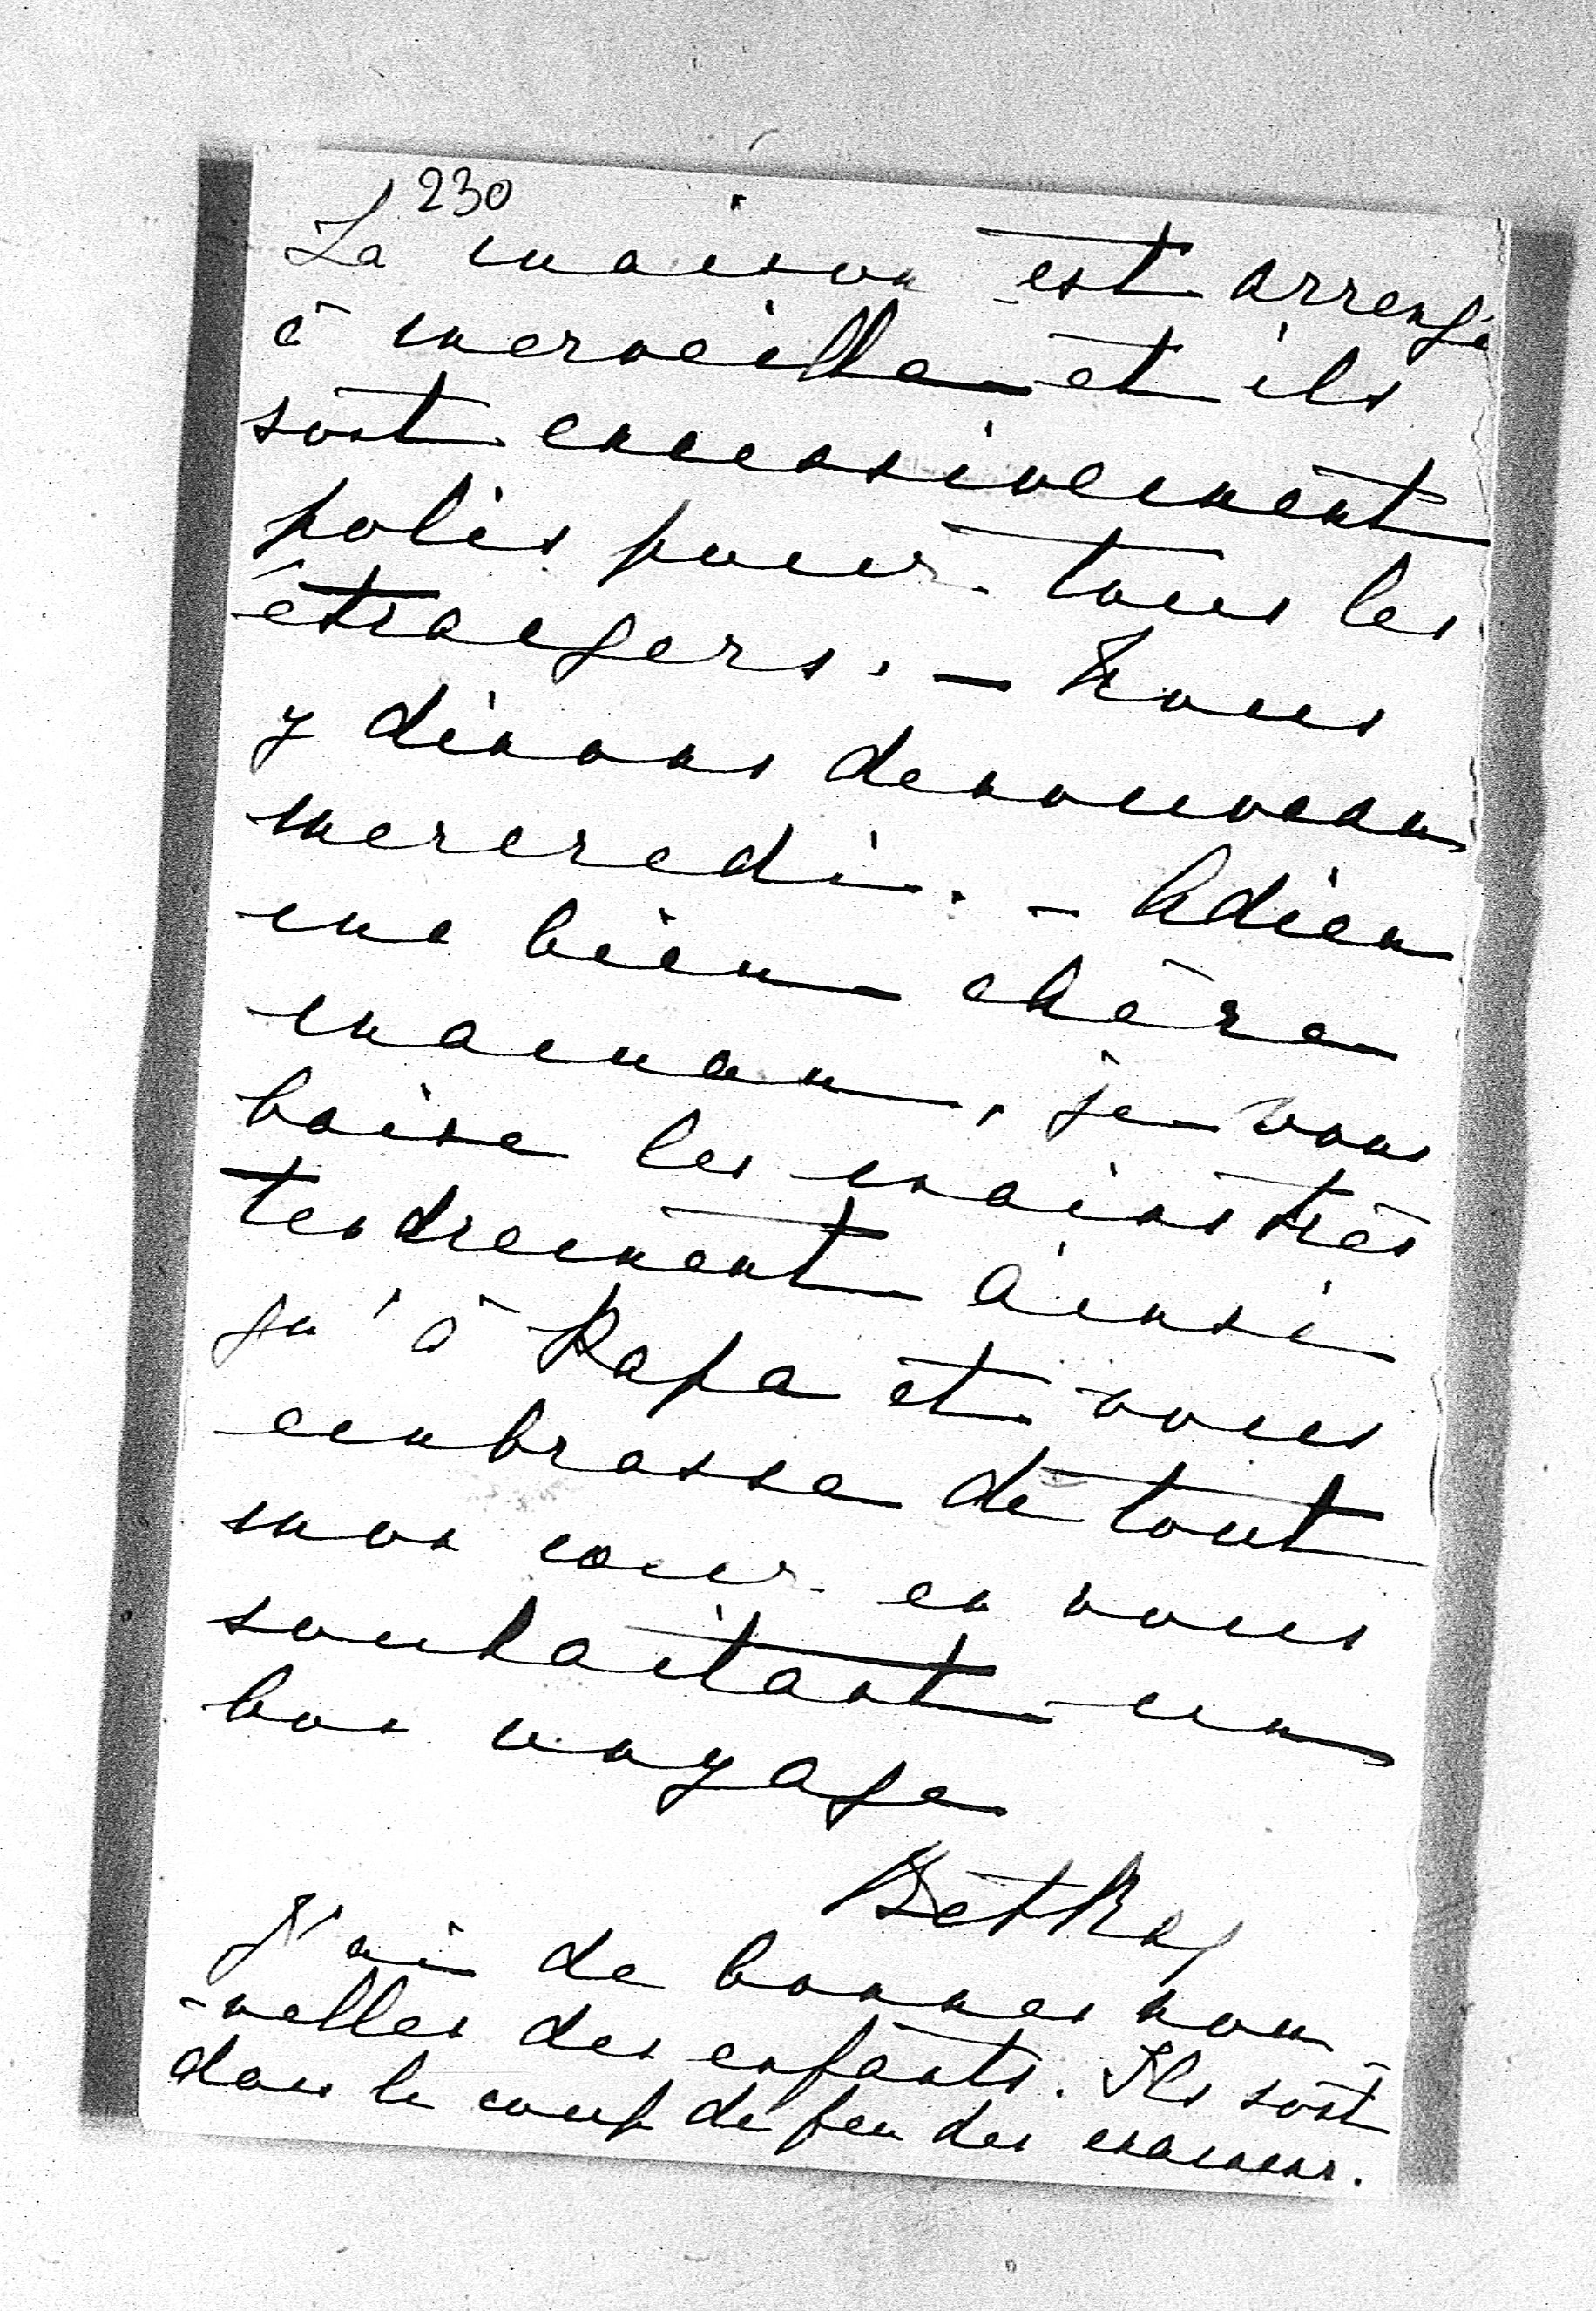 230
La maison est arrangée
à merveille et ils
sont excessivement
polis pour tous les
étrangers. – Nous
y dinons de nouveau
mercredi. – Adieu
ma bien chère
maman, je vous
baise les mains très
tendrement ainsi
qu'à Papa et vous
embrasse de tout
mon cœur en vous
souhaitant un
bon voyage
J'ai de bonnes nou
-velles des enfants. Ils sont
dans le coup de feu des examens.